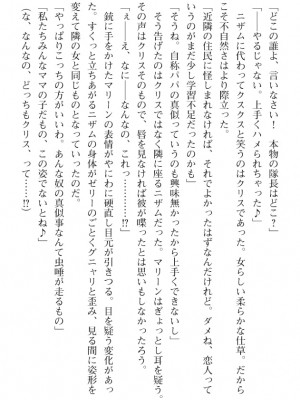 「どこの誰よ、言いなさい! 本物の隊長はどこ?」
「――やるじゃない。上手くハメられちゃった♪」
ニザムに代わってクスクスと笑うのはクリスであった。女らしい柔らかな仕草。だから
こそ不自然さはより際立った。
「近隣の住民に怪しまれなければ、それでよかったはずなんだけれど。ダメね、恋人って
いうのがまだ少し学習不足だったのかも」
「そうね。自称パパの真似っていうのも興味無かったから上手くできないし」
そう告げたのはクリスではなく隣に座るニザムだった。マリーンはぎょっとし耳を疑う。
その声はクリスそのもので、唇を見なければ彼が喋ったとは思いもしなかったろう。
「ぇ……え、なに――なんなの、これっ……????」
銃に手をかけたマリーンの表情がやにわに硬直し目元が引きつる。目を疑う変化があっ
た。すくっと立ちあがるニザムの身体がゼリーのごとくグニャリと歪み、見る間に姿形を
変えて隣の女と同じものとなっていったのだ。
「やっぱりこっちの方がいいわ。あんな奴の真似事なんて虫唾が走るもの」
「私たちみんなママの子だもの、この姿でないとね♪」
(な、なんなの、どっちもクリス、って……!?)